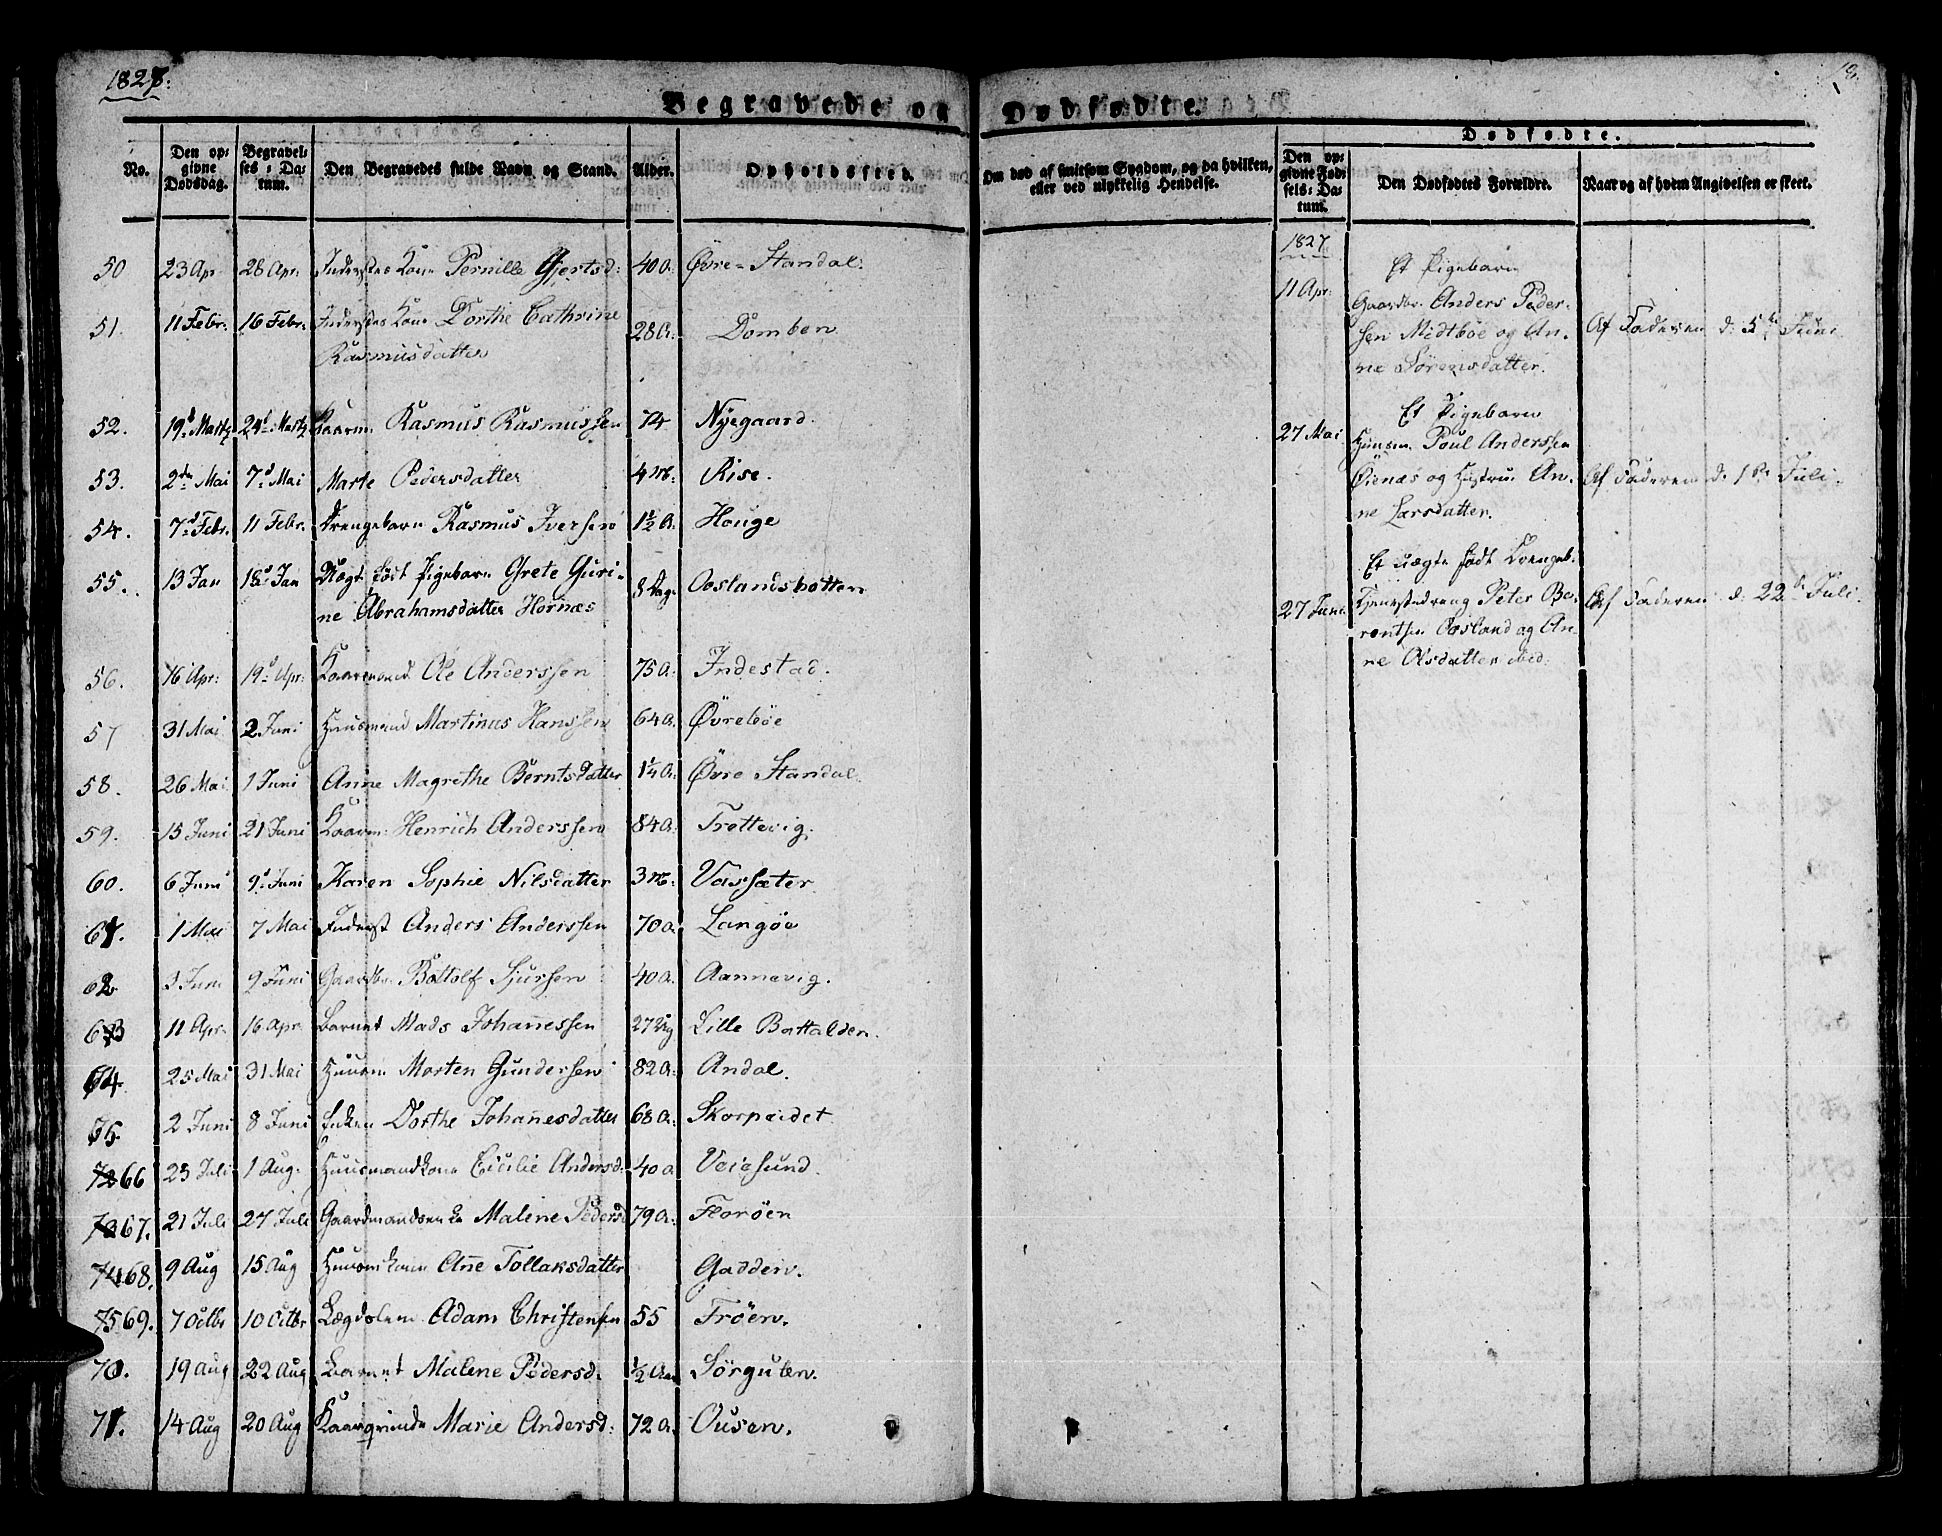 1827.
18.
Begravede og Dødfødte.
Dødfødte.
No.
Den opgivne Dødsdag.
Begravelses-Datum.
Den Begravedes fulde Navn og Stand.
Alder.
Opholdssted.
Om død af smitsom Sygdom, og da hvilken, eller ved ulykkelig Hendelse.
Den opgivne Fødsels-Datum.
Den Dødfødtes Forældre.
Naar og af hvem Angivelsen er skeet.
50 23 Apr 28 Apr: Inderstes Kone Pernille Gjertsd: 40 A: Øvre-Standal.
51. 11 Febr: 16 Febr: Inderstes Kone Dorthe Cathrine
Rasmusdatter 28 A: Domben
52. 19d Martz 24d Martz Kaarm: Rasmus Rasmussen 74 Nyegaard.
53. 2den Mai 7d Mai Marte Pedersdatter 4 M: Rise.
54. 7d Febr. 11 Febr. Drengebarn Rasmus Iversen 1½ A: Houge
55. 13 Jan 18d Jan Uægte født Pigebarn Grete Guri-
ne Abrahamsdatter Hornæs 8 Dag: Ooslandsbotten
56. 16 Apr: 19d Apr: Kaarmand Ole Anderssen 75 A: Indestad.
57 31 Mai 2 Juni Huusmand Martinus Hanssen 64 A: Øvrebøe
58. 26 Mai 1 Juni Anne Magrethe Berntsdatter 1¼ A: Øvre Standal.
59. 15 Juni 21 Juni Kaarm: Henrich Anderssen 84 A: Trottevig.
60. 6 Juni 9d Juni Karen Sophie Nilsdatter 3 M: Vassæter.
61. 1 Mai 7 Mai Inderst Anders Anderssen 70 A: Langøe
62 3 Juni 9 Juni Gaardbr: Bottolf Sjurssen 40 A: Aannevig.
63 11 Apr. 16 Apr. Barnet Mads Johannessen 27 Lille Battalden.
64 25 Mai 31 Mai Huusm Morten Gunderssen 82 A: Andal.
65 2 Juni 8 Juni Enken Dorthe Johannesdatter 68 A: Skorpeidet
72 66 23 Juli 1 Aug. Huusmandkone Cicilie Andersd: 40 A Veiesund.
73 67. 21 Juli 27 Juli Gaardmandsenke Malene Pedersd 79 A: Florøen
74 68. 9 Aug 15 Aug Huusmkone Anne Tollaksdatter Gadden.
75 69. 7 Octbr 10 Octbr Lægdslem Adam Christensen 55 Frøen.
70. 19 Aug 22 Aug Barnet Malene Pedersd: ½ Aar Sørguten.
71. 14 Aug 20 Aug Kaarqvinde Marie Andersd: 72 A: Ousen.
1827.
11 Apr:
Et Pigebarn
Gaardbr. Anders Peder-
sen Midtbøe og An-
ne Sørensdatter.
Af Faderen d: 5te Juni
27 Mai
Et Pigebarn
Huusm. Poul Anderssen
Øienæs og Hustrue An-
ne Larsdatter.
Af Faderen d: 1ste Juli.
27 Juni
Et uægte født Drengeb.
Tjenestedreng Peter Be-
rentsen Oosland og An-
ne Olsdatter ibid:
Af Faderen d: 22de Juli.